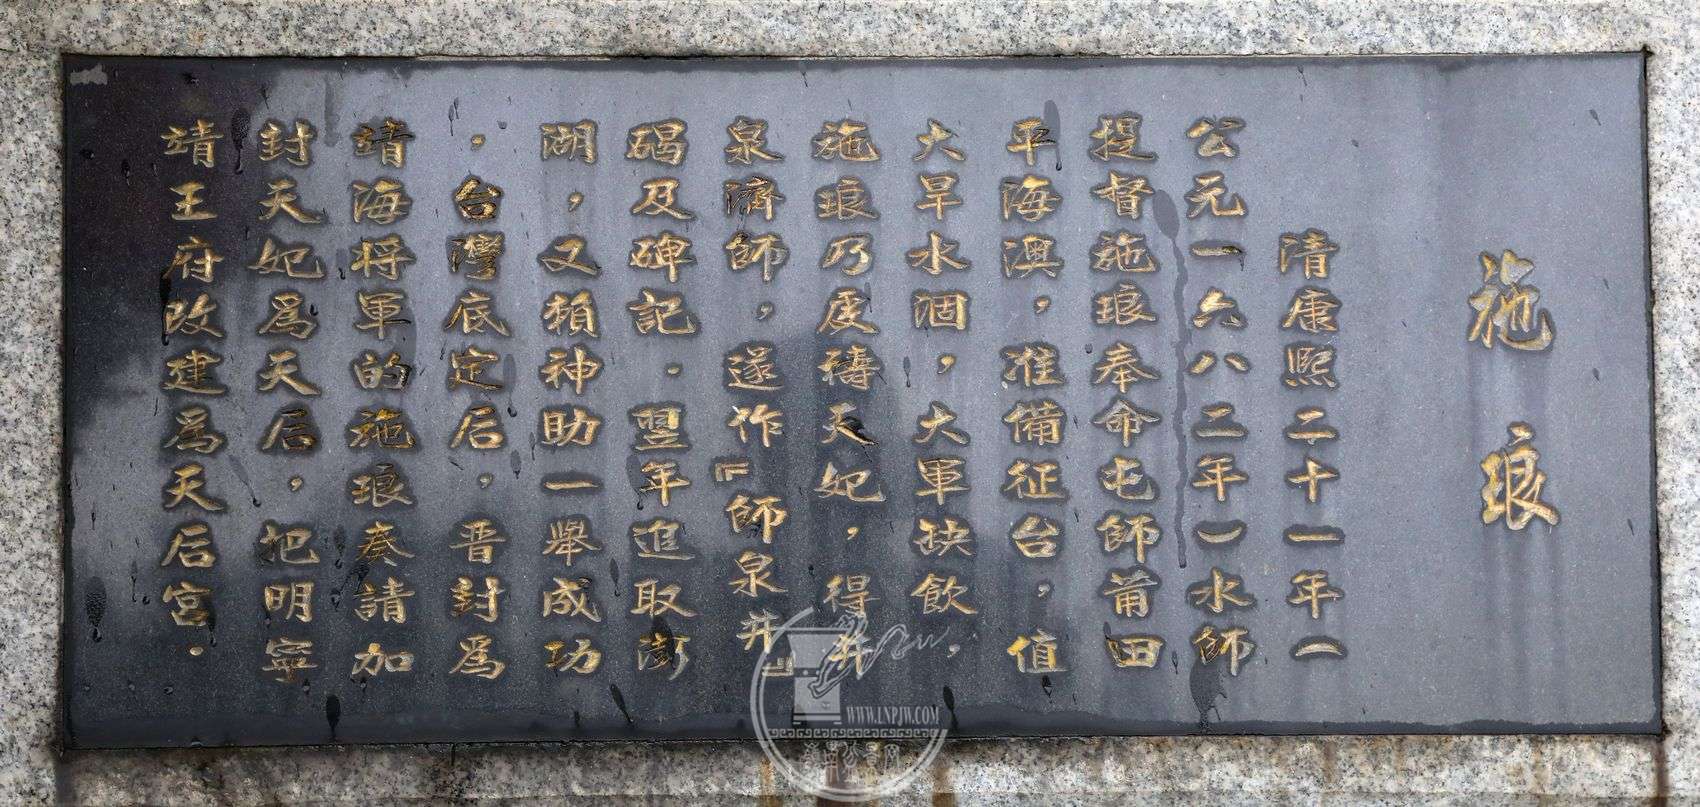 施琅
清康熙二十一年（
公元一六八二年）水師
提督施琅奉命屯師莆田
平海澳，准備征台，值
大旱水涸，大軍缺飲，
施琅乃虔禱天妃，得井
泉濟師，遂作『師泉井』
碣及碑記．翌年進取澎
湖，又賴神助一舉成功
，台灣底定后，晋封爲
靖海将軍的施琅奏請加
封天妃爲天后，把明寧
靖王府改建爲天后宮．
WWW.LNPJW.COM